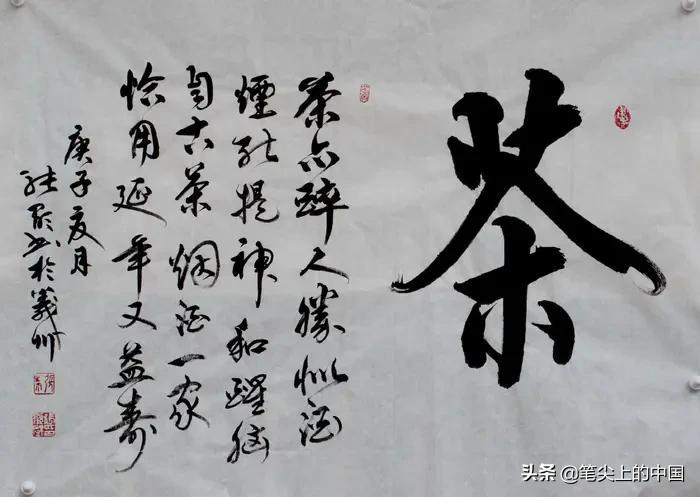 茶
茶亦醉人勝似酒
煙能提神和醒脑
自古茶烟酒一家
恰用延年又益寿
庚子夏月
书於義州
头条 @笔尖上的中国